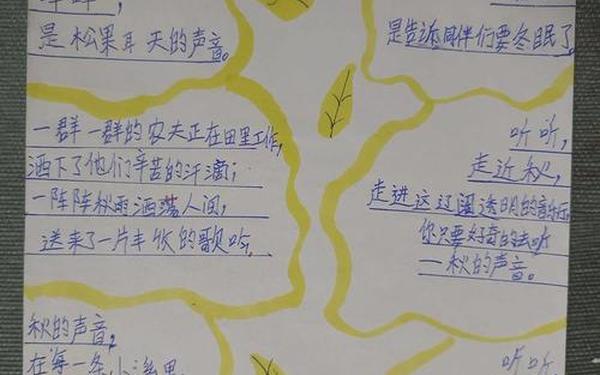 是松果耳 天的声音。
一群一群的农夫正在田里工作,
洒下了他们辛苦的汗滴;
一阵阵秋雨洒落人间,
送来了一片丰收的歌吟,
秋的声音,
在每一条小
是告诉同伴们要冬眠了
听听,
走近秋,
走进这辽阔透明的音乐厅,
你只要好奇的去听
一秋的声音。
听听,